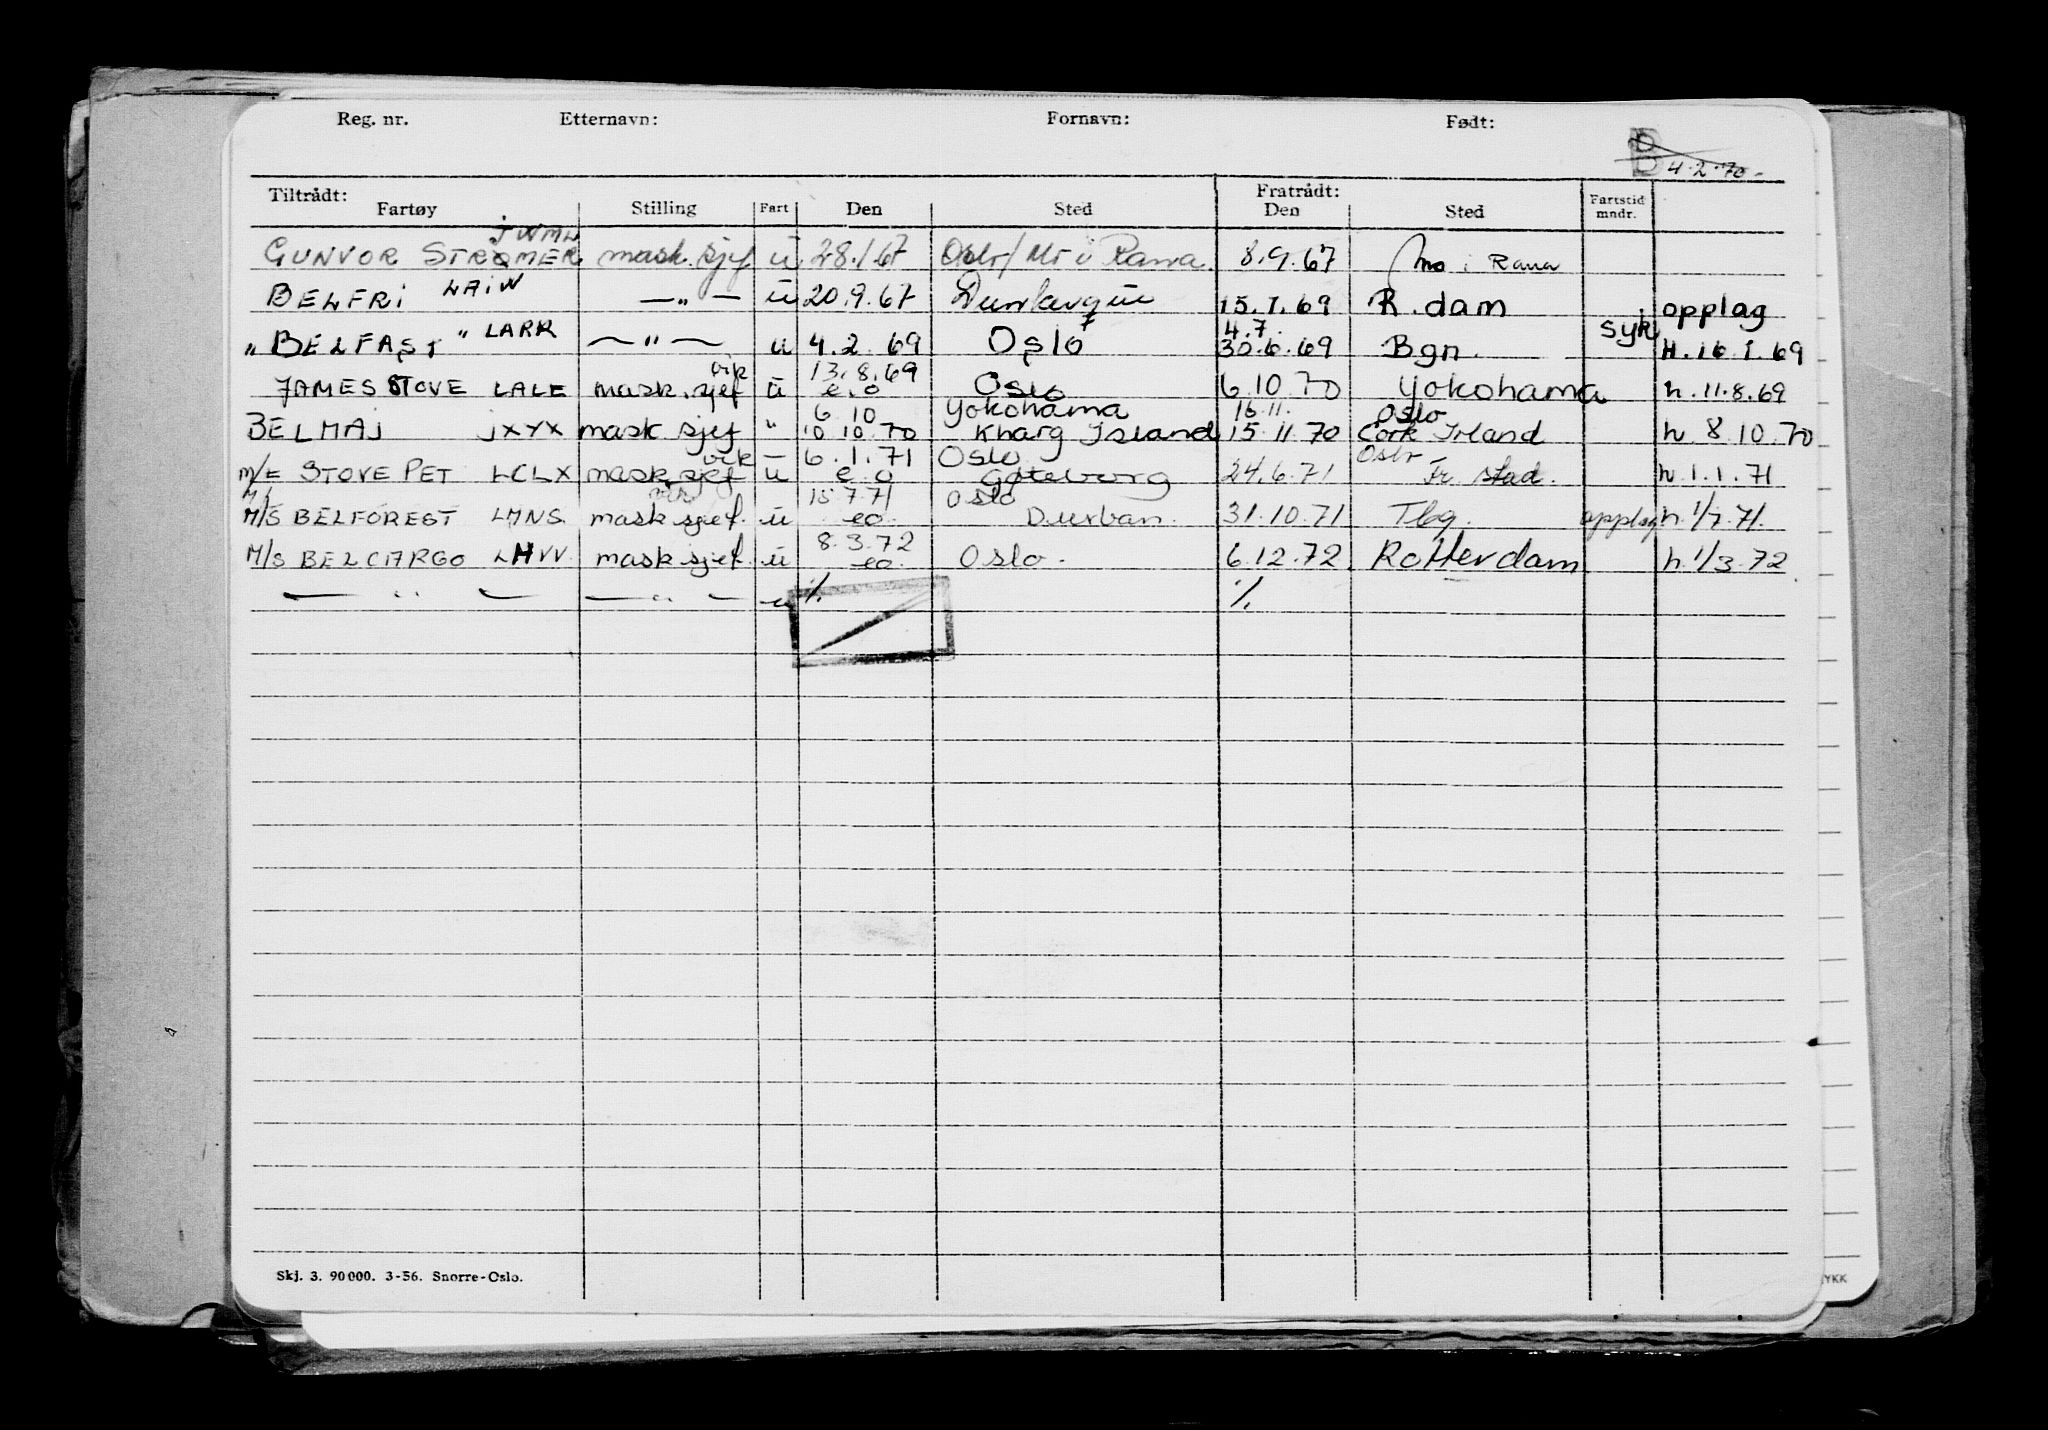 Reg. nr. Etternavn: Fornavn: Født:
4.2.70.
Tiltrådt: Fratrådt:
Fartøy Stilling Fart Den Sted Den Sted Fartstid mndr.
JWML
GUNVOR STROMER mask. sjef u 28.1.67 Oslo/Mo i Rana 8.9.67 Mo i Rana
BELFRI LAIW —"— u 20.9.67 Dunkerque 15.1.69 R.dam opplag
4.7.
"BELFAST" LARR —"— u 4.2.69 Oslo 30.6.69 Bgn. syk H.16.1.69
vik 13.8.69
JAMES STOVE LALE mask.sjef u e.o Oslo 6.10.70 Yokohama h.11.8.69
6.10 Yokohama 16.11. Oslo
BELMAJ JXYX mask sjef " 10.10.70 Kharg Island 15.11.70 Cork Irland h 8.10.70
vik — 6.1.71 Oslo Oslo
M/E STOVE PET LCLX mask sjef u e.o Gøteborg 24.6.71 Fr.stad. h.1.1.71
vik 15.7.71 Oslo
M/S BELFOREST LMNS mask sjef. u eo. Durban. 31.10.71 Tbg. opplag h.1/7.71.
8.3.72
M/S BELCARGO LHVV mask sjef. u eo. Oslo. 6.12.72. Rotterdam h.1/3.72.
— " — — " — u %. %.
Skj. 3. 90000. 3-56. Snorre-Oslo.
YKK